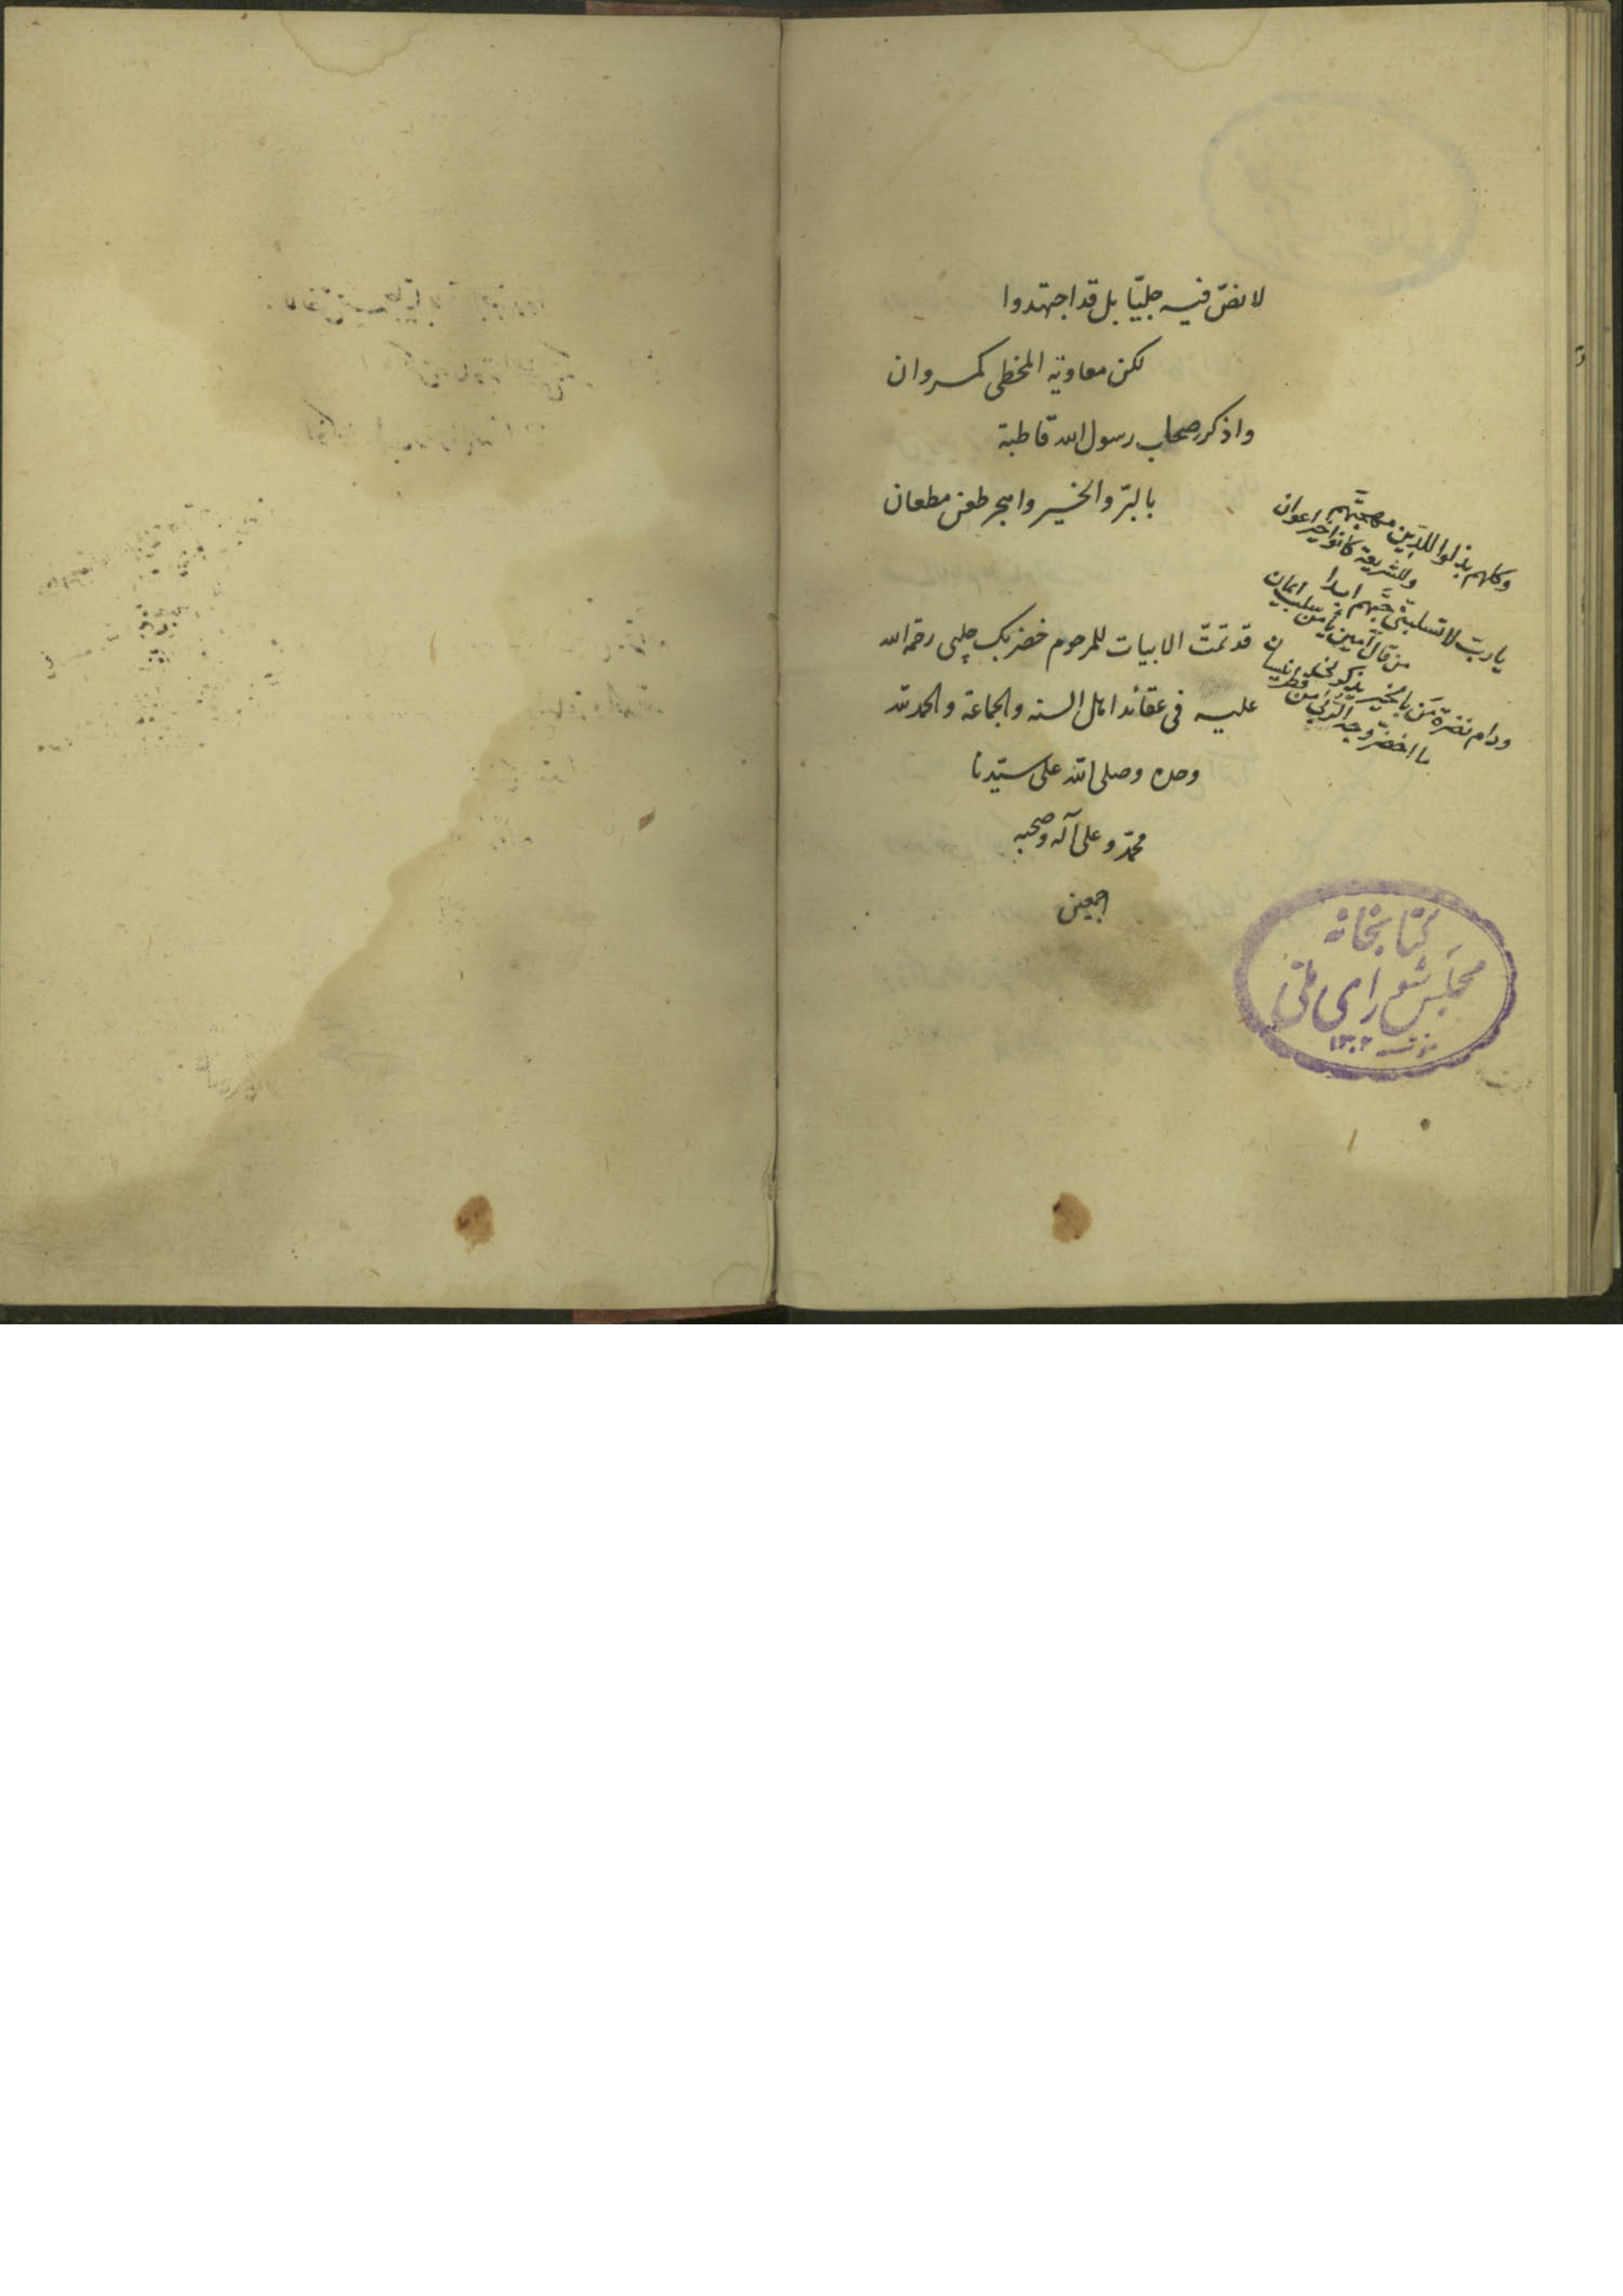 لا نصّ فيه جليّا بل قد اجتهدوا
لكن معاوية المخطى كمروان
واذكر صحاب رسول الله قاطبة
بالبرّ والخير واهجر طعن مطعان
وكلهم بذلوا للدين مهجتهم
وللشريعة كانوا خير اعوان
يا ربّ لا تسلبنّى حبّهم ابدا
من قال آمين يأمن سلب ايمان
ودام نضرة من بالخير يذكرنى
ما اخضرّ وجه الثرى من قطر نيسان
قد تمّت الابيات للمرحوم خضر بك چلبى رحمة الله
عليه فى عقائد اهل السنه والجماعة والحمد لله
وحده وصلى الله على سيّدنا
محمّد وعلى آله وصحبه
اجمعين
كتابخانه
مجلس شوراى ملّى
١٣٠٢